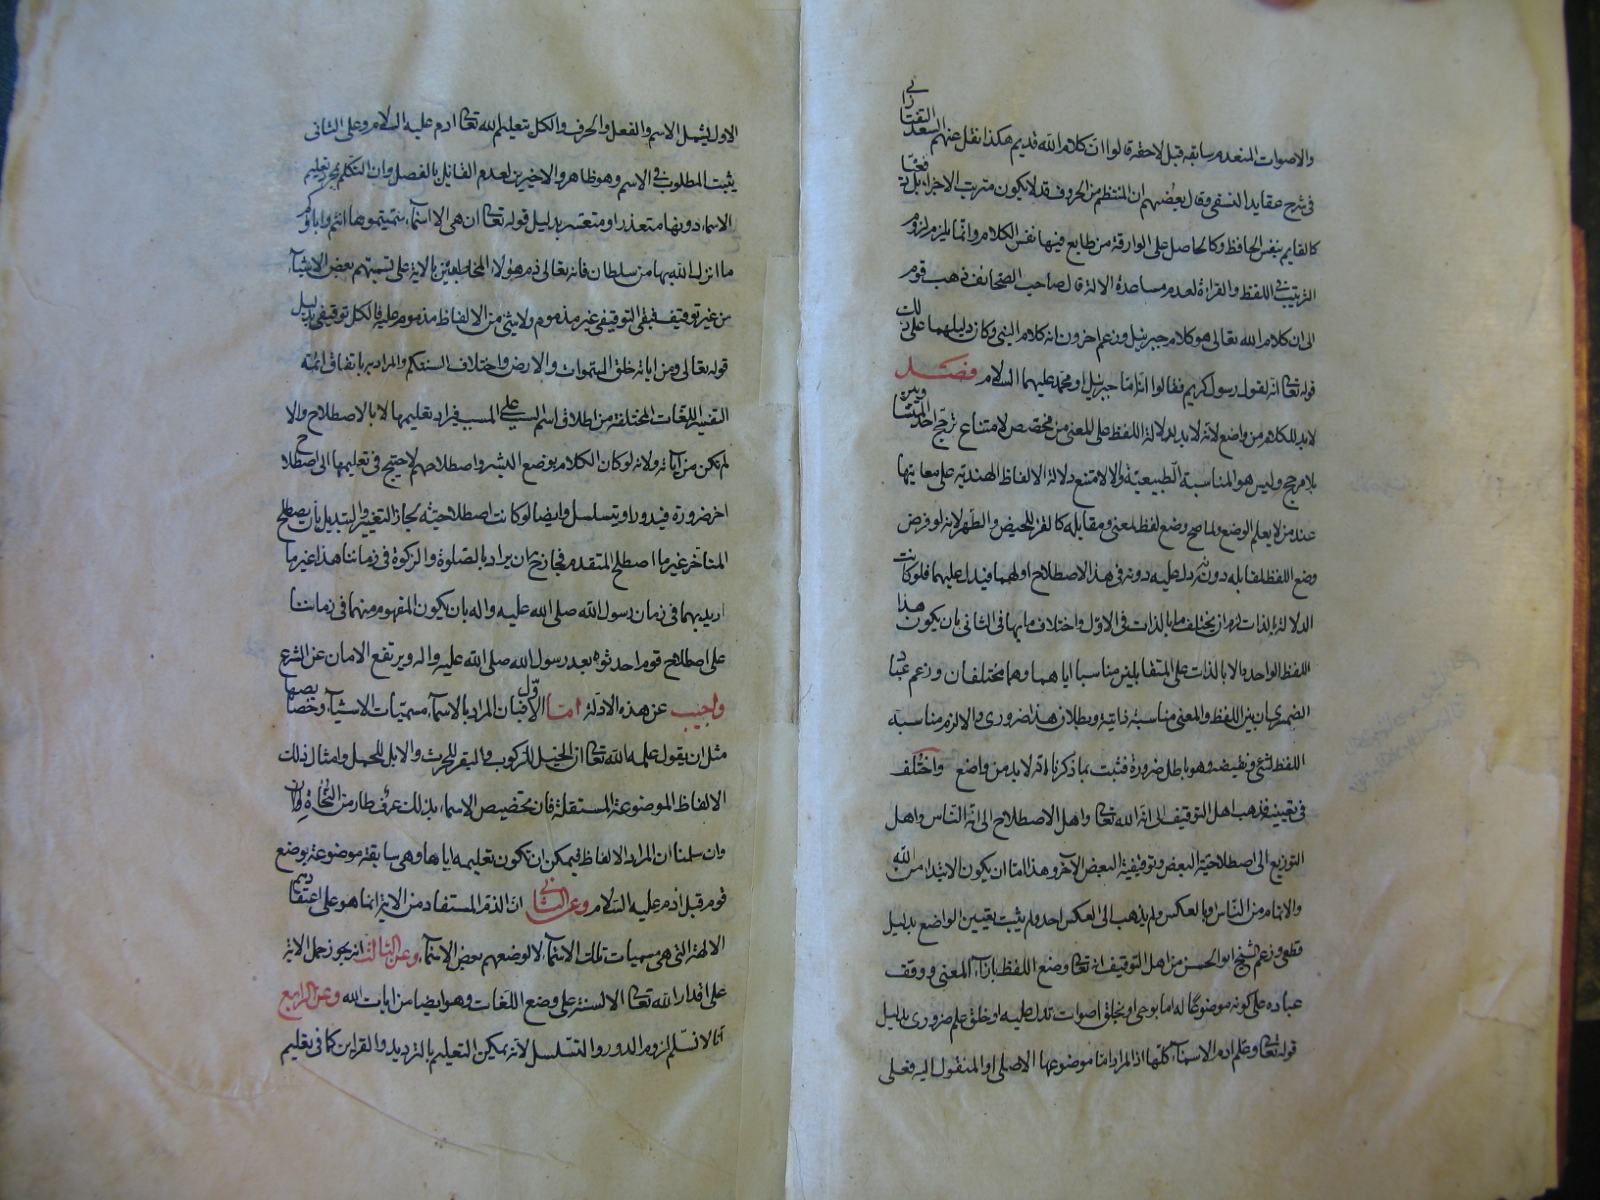 والاصوات المنعدم سابقه قبل لاحقه قالوا ان كلام الله قديم هكذا نقل عنهم السعد التفتازاني
في شرح عقايد النسفي وقال بعضهم ان المنتظم من الحروف قد لا يكون مترتب الاجزاء بل دفعتا
كالقايم بنفس الحافظ وكالحاصل على الورقة من طابع فيها نفس الكلام وانما يلزم لزوم
الترتيب في اللفظ والقراءة لعدم مساعدة الالة قال صاحب الصحائف ذهب قوم
الى ان كلام الله تعالى هو كلام جبرئيل وزعم اخرون انه كلام النبي وكان دليلهما على ذلك
قوله تعا انه لقول رسول كريم فقالوا انه اما جبرئيل او محمد عليهما السلام فصل
لابد للكلام من واضع لانه لا بد لدلالة اللفظ على المعنى من مخصص لامتناع ترجح احد المتساويين
بلا مرجح وليس هو المناسبة الطبيعية والا لامتنع دلالة الالفاظ الهندية على معانيها
عند من لا يعلم الوضع ولما صح وضع لفظ لمعنى ومقابله كالقرء للحيض والطهر لانه لو فرض
وضع اللفظ لمقابله دونه دل عليه دونه في هذا الاصطلاح اولهما فيدل عليهما فلو كانت
الدلالة بالذات لزم ان يختلف ما بالذات في الاول واختلاف ما بها في الثاني بان يكون هذا
اللفظ الواحد دالا بالذات على المتقابلين مناسبا اياهما وهما مختلفان وزعم عباد
الضمري ان بين اللفظ والمعنى مناسبة ذاتية وبطلان هذا ضروري والا لزم مناسبة
اللفظ لشئ ونقيضه وهو باطل ضرورة فثبت بما ذكرنا انه لابد من واضع واختلف
في تعيينه فذهب اهل التوقيف الى انه الله تعا واهل الاصطلاح الى انه الناس واهل
التوزيع الى اصطلاحية البعض وتوقيفية البعض الآخر وهذا اما ان يكون الابتداء من الله
والاتمام من الناس او بالعكس ولم يذهب الى العكس احد ولم يثبت تعيين الواضع بدليل
قطعي وزعم الشيخ ابو الحسن من اهل التوقيف انه تعا وضع اللفظ بازاء المعنى ووقف
عباده على كونه موضوعا له اما بوحي او بخلق اصوات تدل عليه او خلق علم ضروري بدليل
قوله تعا وعلم ادم الاسماء كلها اذ المراد اما موضوعها الاصلي او المنقول اليه فعلى
الاول يشمل الاسم والفعل والحرف والكل بتعليم الله تعا ادم عليه السلام وعلى الثاني
يثبت المطلوب في الاسم وهو ظاهر والاخيرين لعدم القائل بالفصل وان التكلم بمجرد تعليم
الاسماء دونها متعذر او متعسر بدليل قوله تعا ان هي الا اسماء سميتموها انتم واباؤكم
ما انزل الله بها من سلطان فانه تعالى ذم هؤلاء المخاطبين بالاية على تسميتهم بعض الاشياء
من غير توقيف فبقى التوقيفي غير مذموم ولا شئ من الالفاظ مذموم عليه فالكل توقيفي بدليل
قوله تعالى ومن اياته خلق السموات والارض واختلاف السنتكم والمراد به باتفاق ائمة
التفسير اللغات المختلفة من اطلاق اسم السبب على المسبب فيراد تعليمها لا بالاصطلاح والا
لم تكن من آياته ولانه لو كان الكلام بوضع البشر واصطلاحهم لاحتيج في تعليمها الى اصطلاح
اخر ضرورة فيدور او يتسلسل وايضا لو كانت اصطلاحية لجاز التغيير والتبديل بأن يصطلح
المتأخر غير ما اصطلح المتقدم فجاز ح ان يراد بالصلوة والزكوة في زماننا هذا غير ما
اريد بهما في زمان رسول الله صلى الله عليه واله بان يكون المفهوم منهما في زماننا
على اصطلاح قوم احدثوه بعد رسول الله صلى الله عليه واله ويرتفع الامان عن الشرع
واجيب عن هذه الادلة اما الاول فبان المراد بالاسماء مسميات الاشياء وخصايصها
مثل ان يقول علمه الله تعا ان الخيل للركوب والبقر للحرث والابل للحمل وامثال ذلك
الالفاظ الموضوعة المستقلة فان تخصيص الاسماء بذلك عرف طار من النحاة وان
وان سلمنا ان المراد الالفاظ فيمكن ان تكون تعليمه اياها وهي سابقه موضوعة بوضع
قوم قبل ادم عليه السلام وعن الثاني ان الذم المستفاد من الاية انما هو على اعتقادهم
الالهة التي هي مسميات تلك الاسماء لا لوضعهم بعض الاسماء وعن الثالث انه يجوز حمل الاية
على اقدار الله تعا الالسنة على وضع اللغات وهو ايضا من ايات الله وعن الرابع
انا لا نسلم لزوم الدور والتسلسل لانه يمكن التعليم بالترديد والقراين كما في تعليم